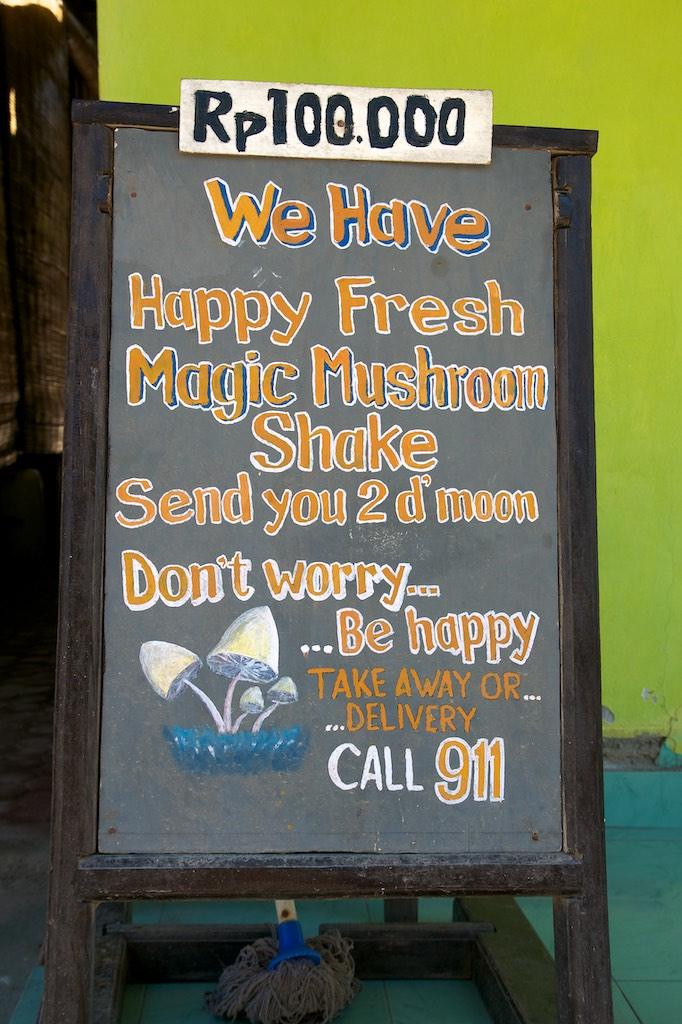 Rp100.000
We Have
Happy Fresh
Magic Mushroom
Shake
Send you 2 d' moon
Don't worry...
...Be happy
TAKE AWAY OR...
...DELIVERY
CALL 911